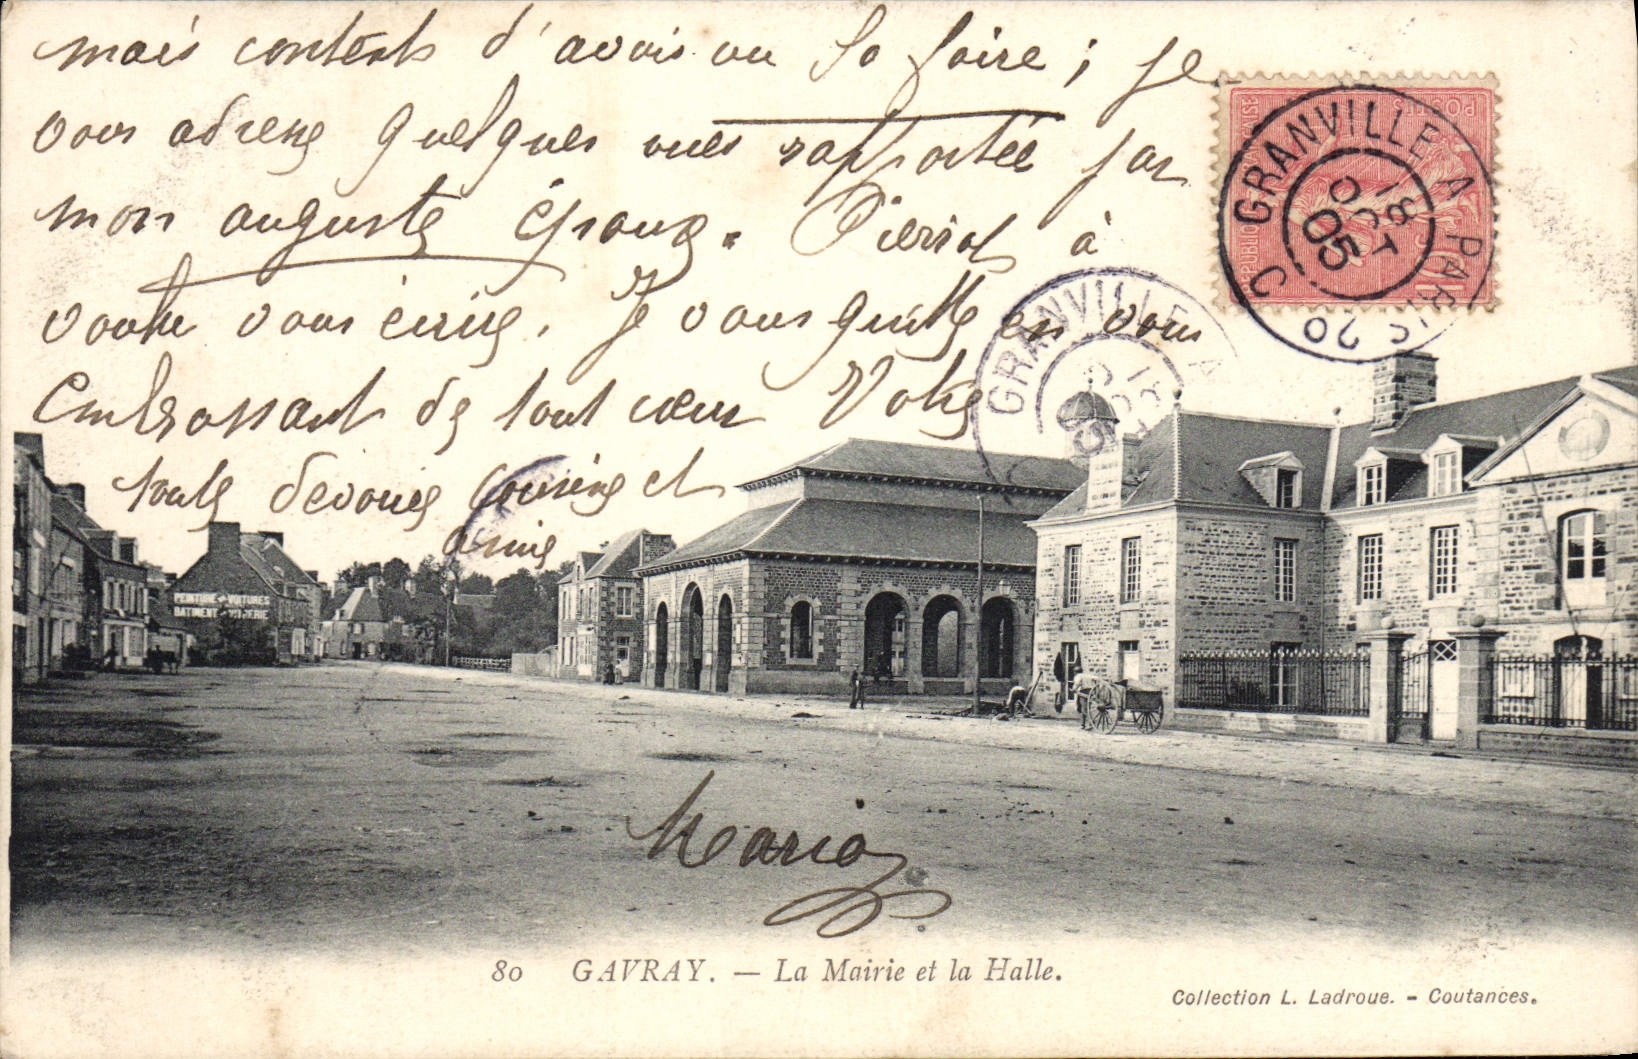 mais contents d'avoir vu la foire ; je
vous adresse quelques vues rapportées par
mon auguste époux. Pierrot à
vous écrire. Je vous quitte en vous
Embrassant de tout cœur Votre
toute dévouée cousine et
amie
Maria
REPUBLIQUE FRANÇAISE
POSTES
10
GRANVILLE A PARIS 2°
18
OCT
05
GRANVILLE A
18
OC
05
PEINTURE VOITURES
BATIMENT VITRERIE
80 GAVRAY. — La Mairie et la Halle.
Collection L. Ladroue. - Coutances.